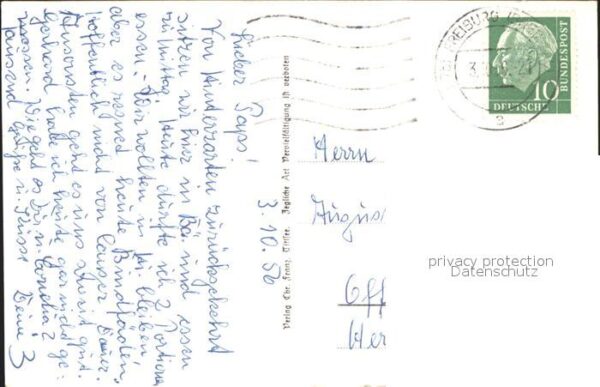 Lieber Paps!
Von Hinterzarten zurückgekehrt
sitzen wir hier in Bä. und essen
zu Mittag. Heute dürfte ich 2 Portionen
essen. Wir wollten in bleiben
aber es regnet heute Bindfäden.
Hoffentlich nicht von langer Dauer.
Ansonsten geht es uns derzeit gut.
Gerhard habe ich heute gar nicht ge-
messen. Wie geht es Dir u.
Tausend Grüße u. Küsse Deine 3
3.10.56
Verlag Chr. Franz, Jegliche Art Vervielfältigung ist verboten
FREIBURG
DEUTSCHE
BUNDESPOST
10
Herrn
Augus
Off
Her
privacy protection
Datenschutz